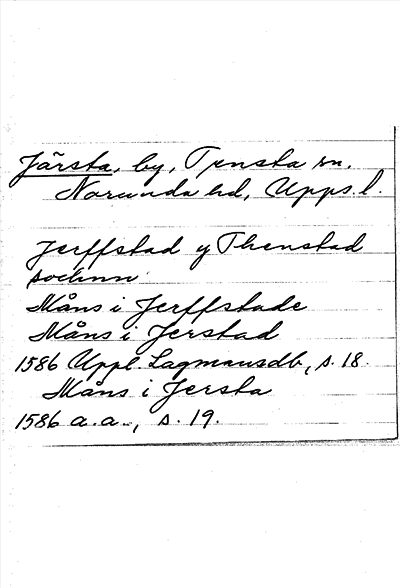 Järsta, by, Tensta sn.
Norunda hd, Upps. l.
Jerffstad y Thenstad
sochnn
Måns i Jerffstade
Måns i Jerstad
1586 Uppl. Lagmansdb, s. 18.
Måns i Jersta
1586 a. a., s. 19.